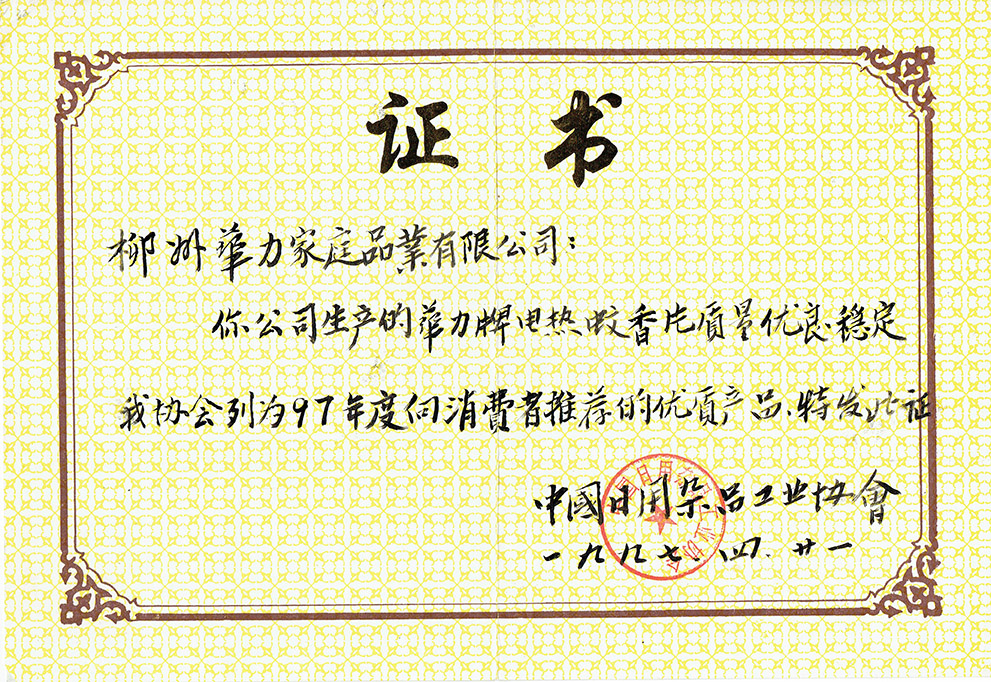 证书
柳州華力家庭品業有限公司：
你公司生产的華力牌电热蚊香片质量优良稳定
我协会列为97年度向消费者推荐的优质产品、特发此证
中國日用杂品工业协會
一九九七.四.廿一
中国日用杂品工业协会